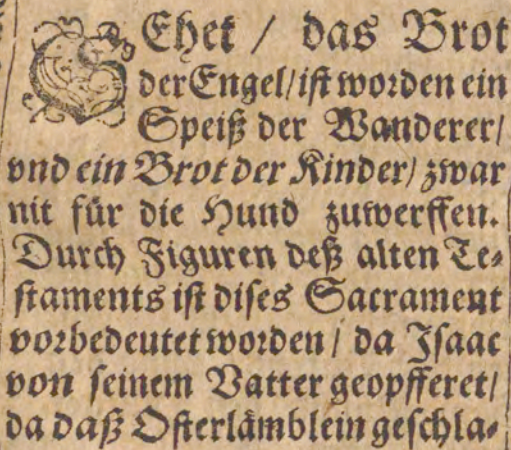 SEhet / das Brot
der Engel / ist worden ein
Speiß der Wanderer /
vnd ein Brot der Kinder / zwar
nit für die Hund zuwerffen.
Durch Figuren deß alten Te⸗
staments ist dises Sacrament
vorbedeutet worden / da Isaac
von seinem Vatter geopfferet /
da daß Osterlämblein geschla⸗